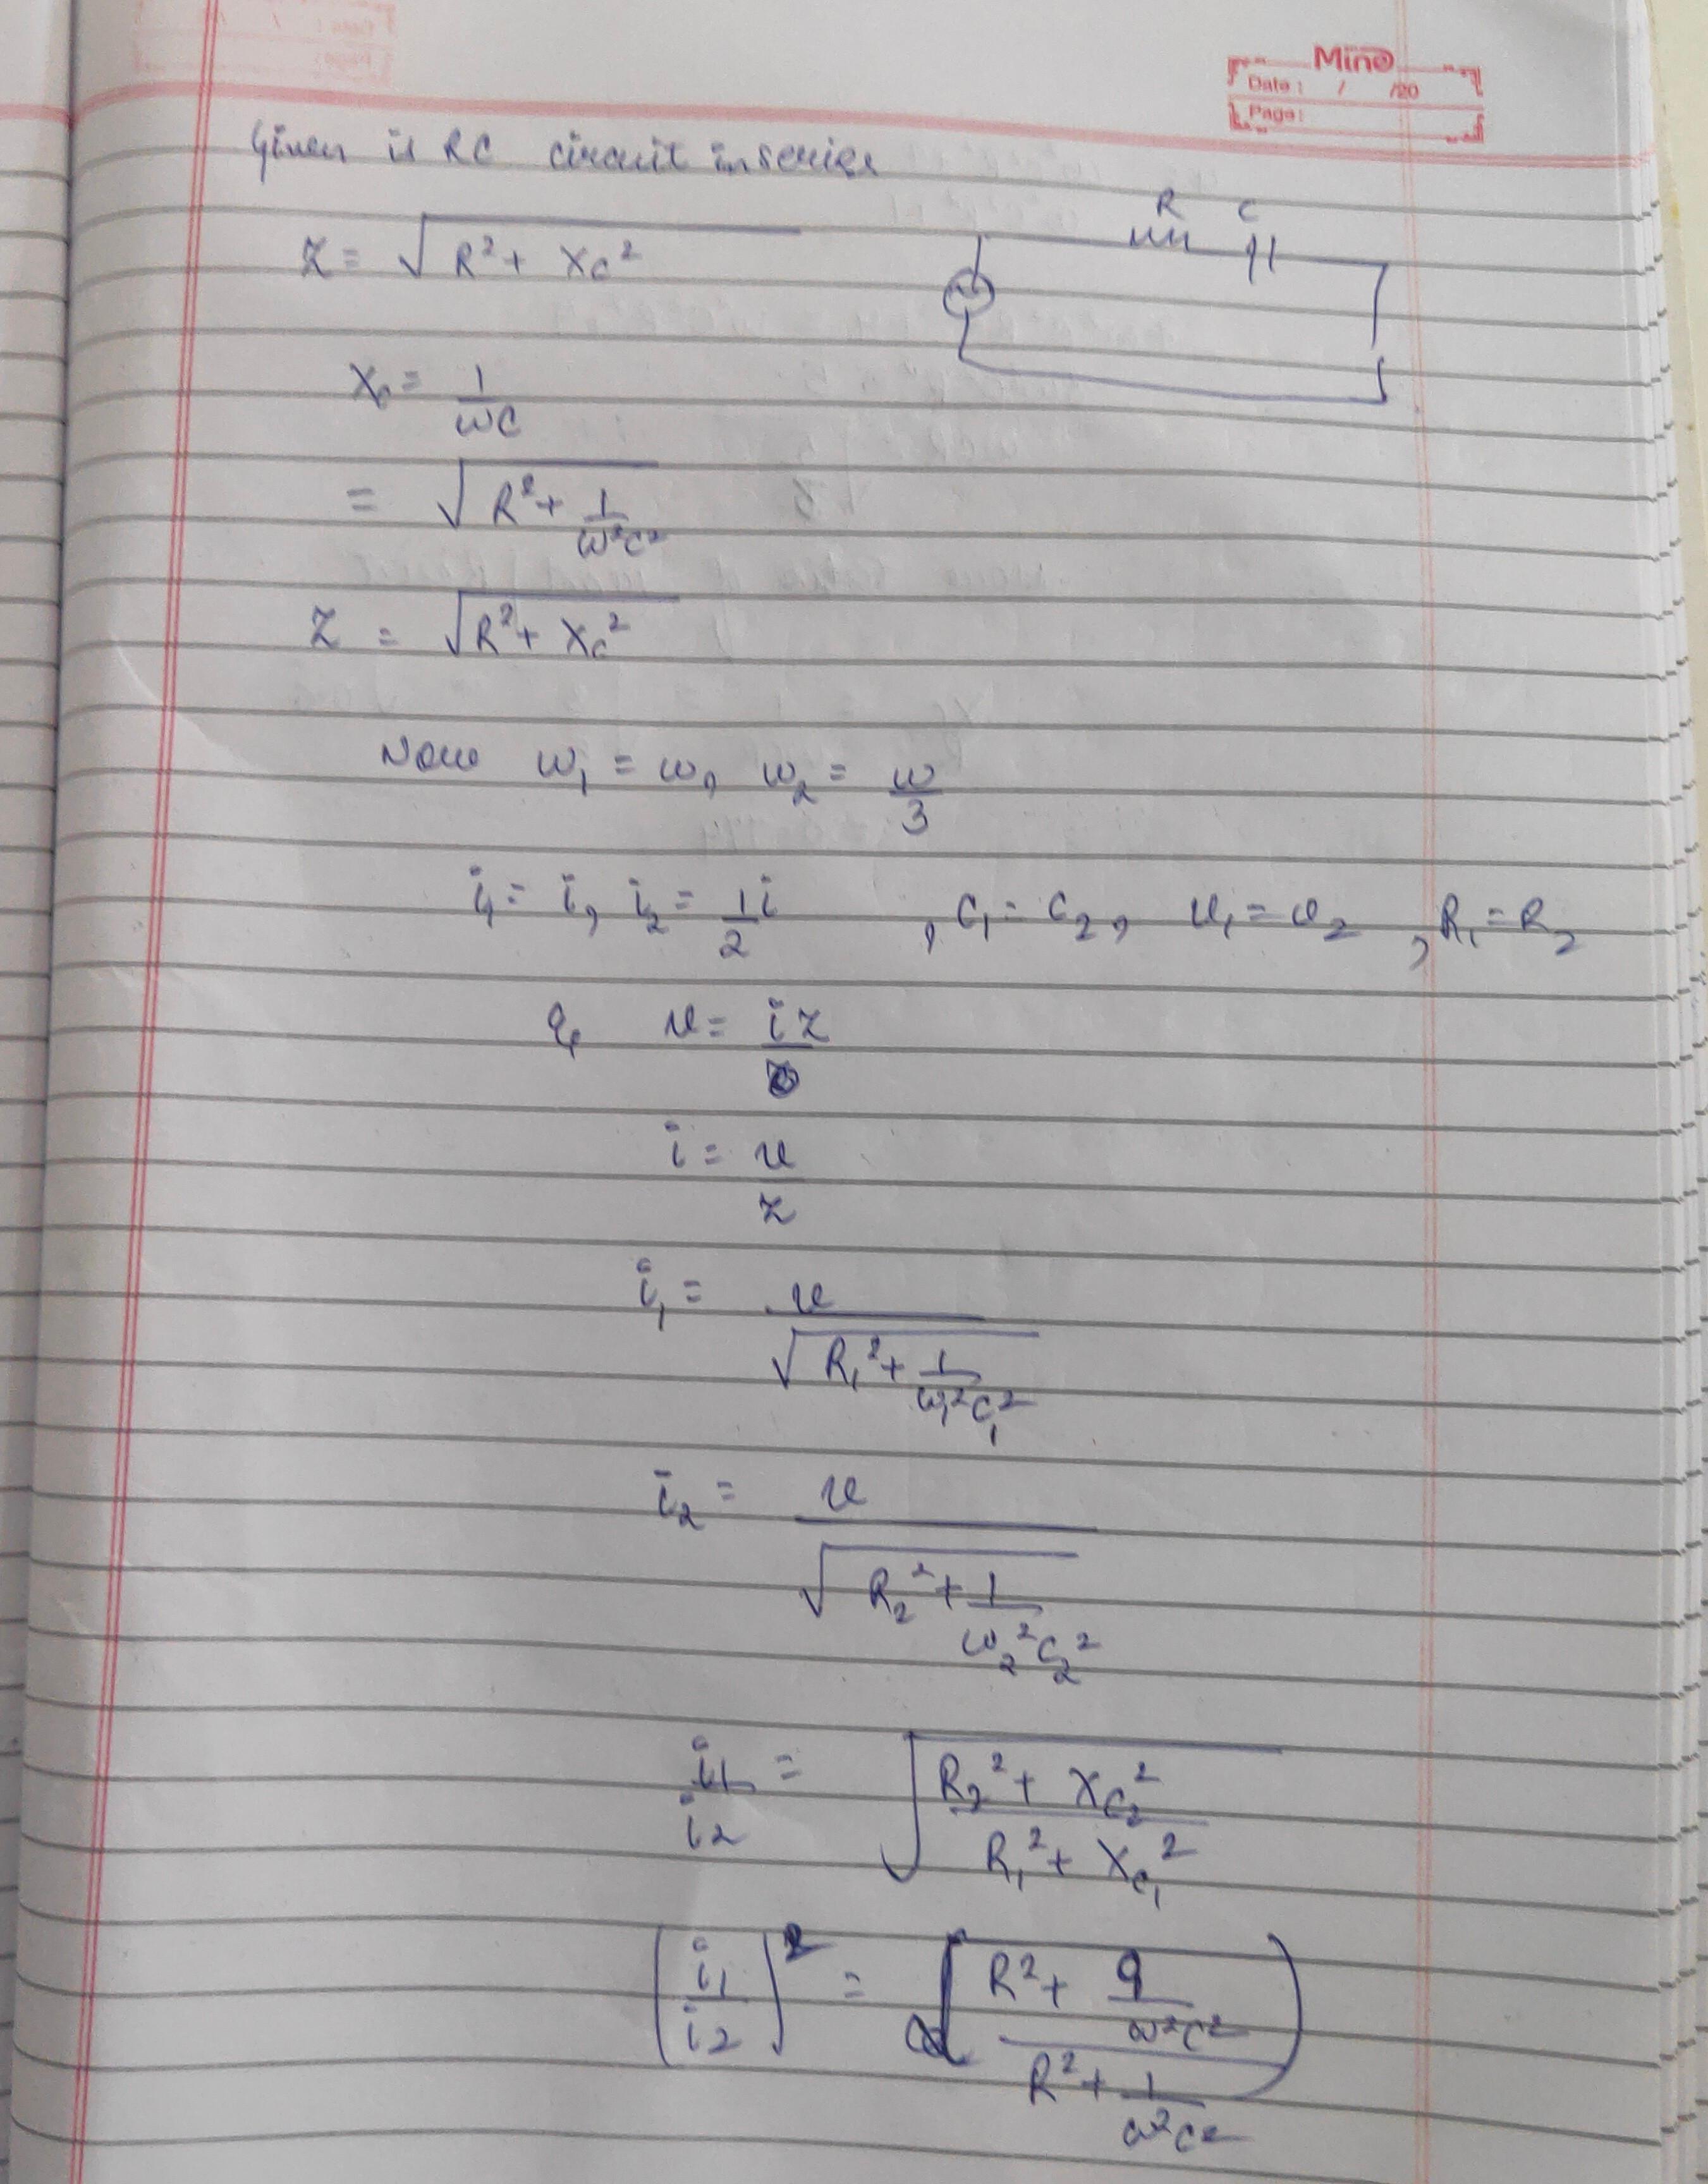 Mino
Date : / /20
Page:
Given is RC circuit in series
R C
Z = √(R² + Xc²)
Xc = 1/ωC
= √(R² + 1/ω²C²)
Z = √(R² + Xc²)
Now ω₁ = ω, ω₂ = ω/3
i₁ = i, i₂ = 1/2 i , C₁ = C₂, v₁ = v₂, R₁ = R₂
& v = iz
i = v/z
i₁ = v/√(R₁² + 1/ω₁²C₁²)
i₂ = v/√(R₂² + 1/ω₂²C₂²)
i₁/i₂ = √((R₂² + Xc₂²)/(R₁² + Xc₁²))
(i₁/i₂)² = ((R² + 9/ω²C²)/(R² + 1/ω²C²))